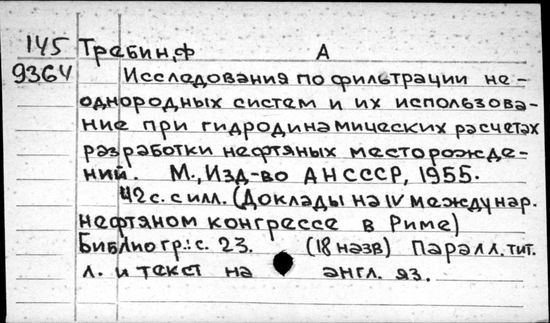 145 Требин, Ф А
9364 Исследования по фильтрации не-
однородных систем и их использова-
ние при гидродинамических расчетах
разработки нефтяных месторожде-
ний. М., Изд-во АНСССР, 1955.
42с. с илл. (Доклады на IV междунар.
нефтяном конгрессе в Риме)
Библиогр.: с. 23. (18 назв) Паралл. тит.
л. и текст на англ. яз.